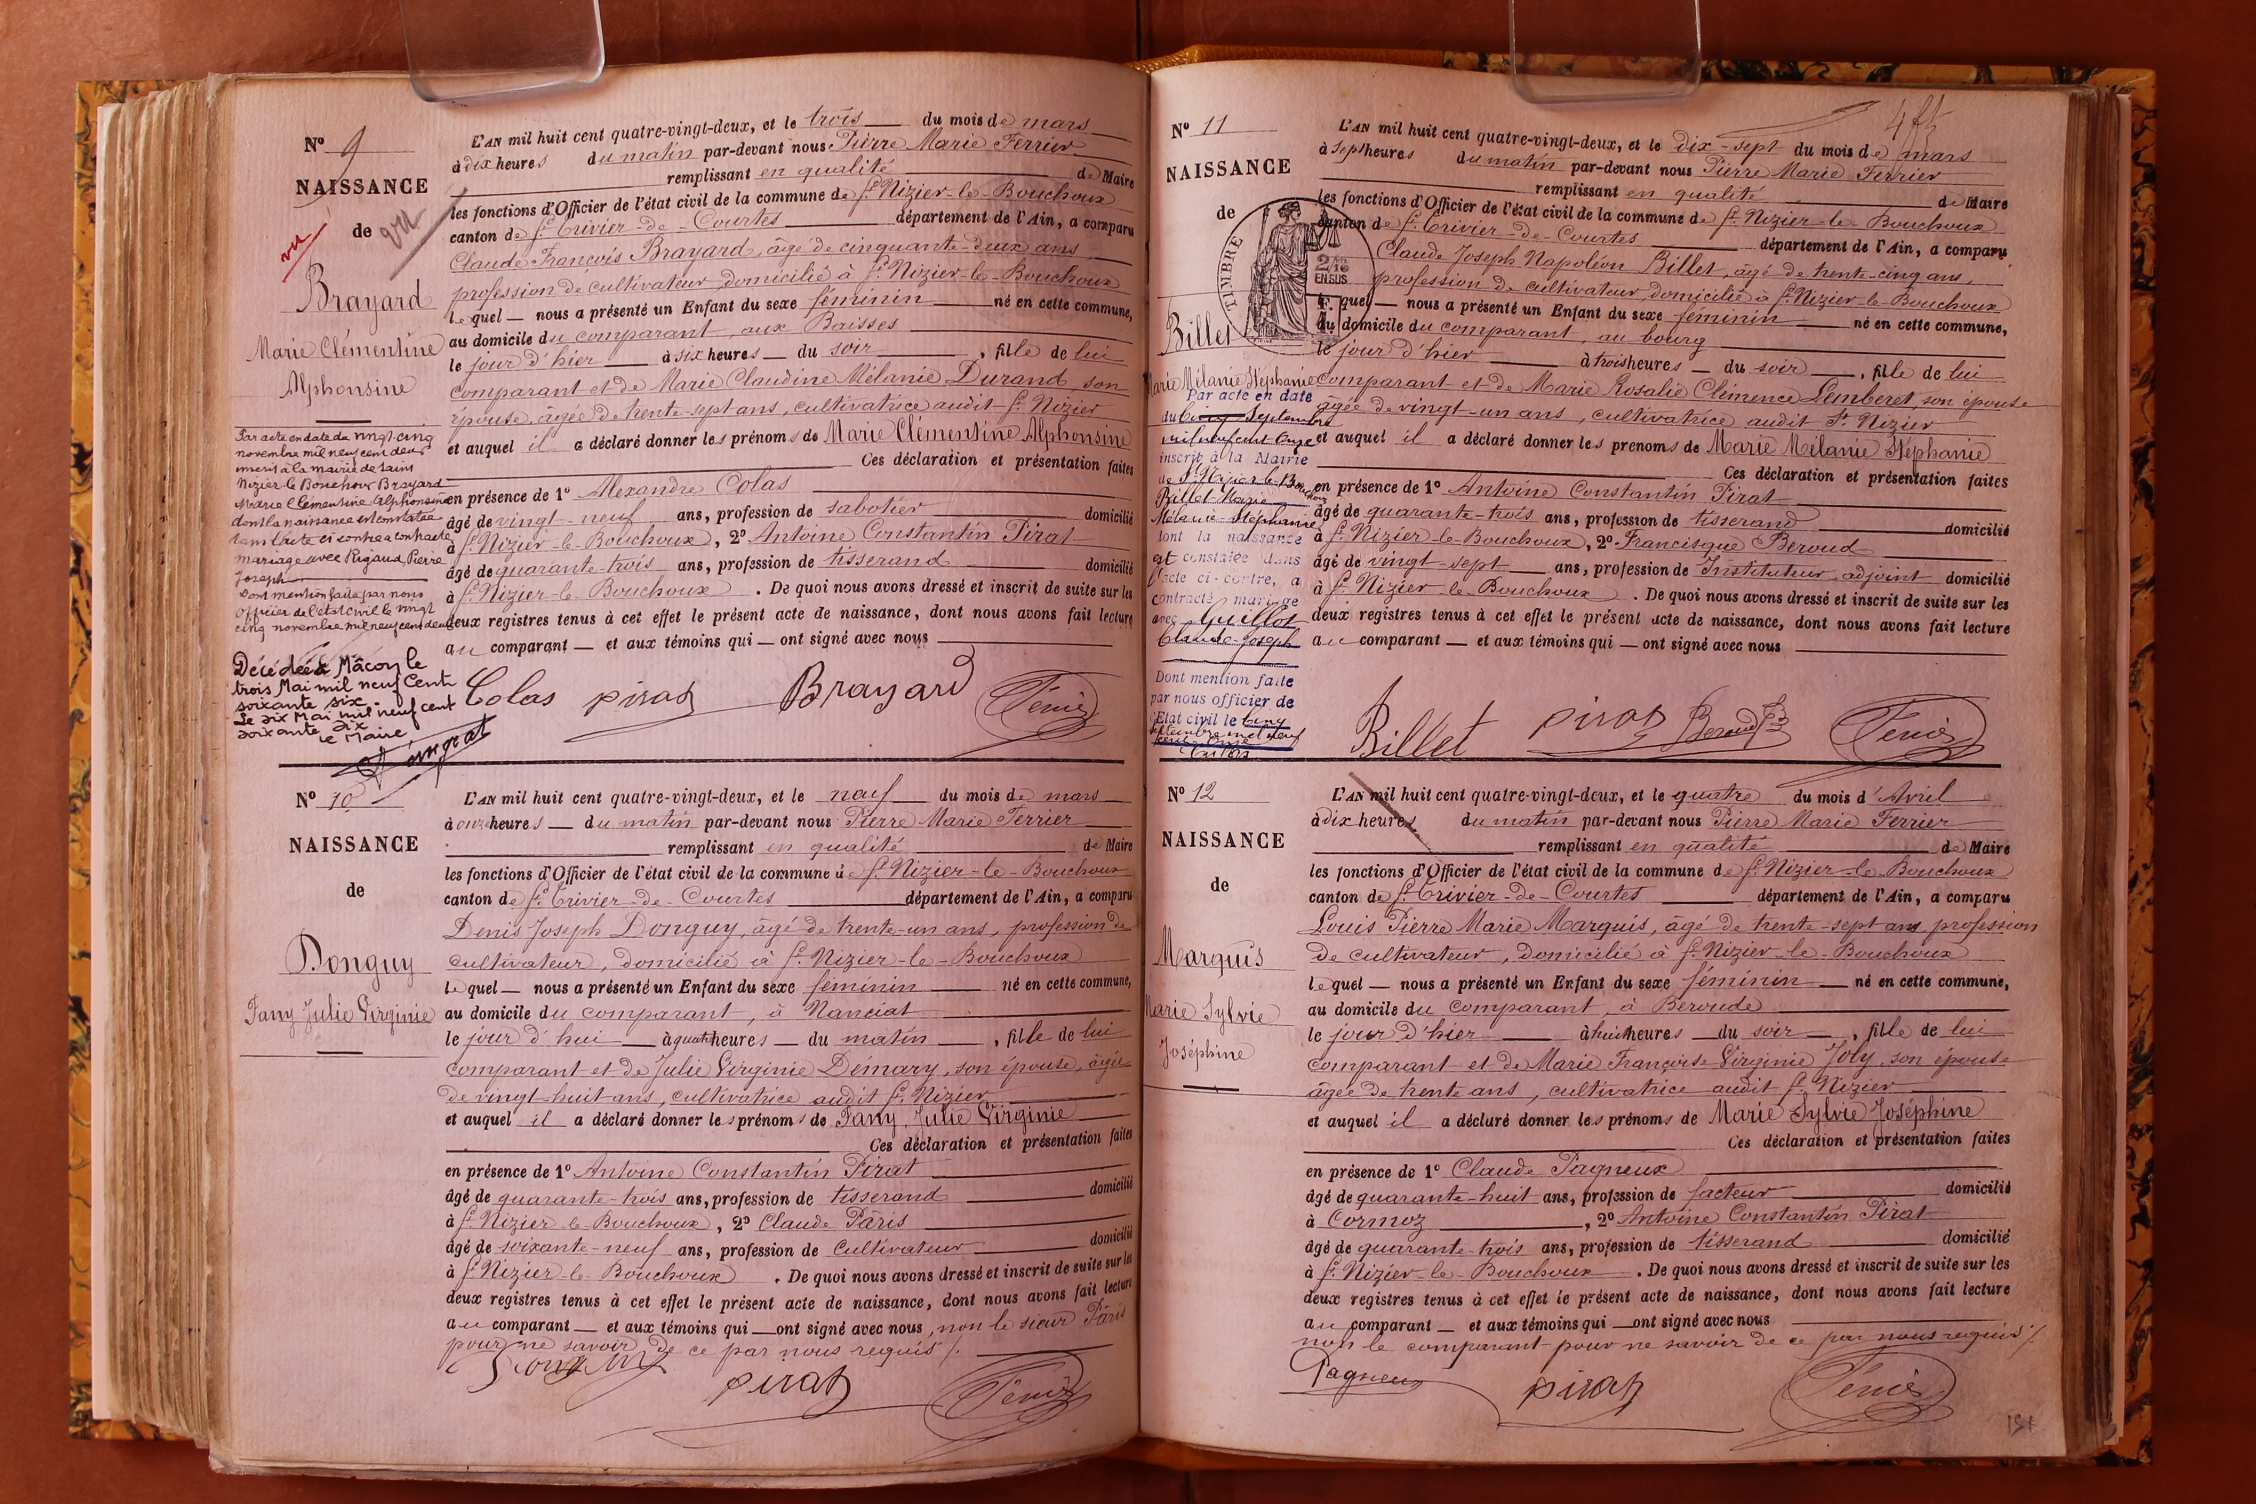 N° 9
NAISSANCE
de vu
vu
Brayard
Marie Clémentine
Alphonsine
Par acte en date du vingt-cinq
novembre mil neuf cent deux
inscrit à la mairie de Saint
Nizier-le Bouchoux Brayard
Marie Clémentine Alphonsine
dont la naissance est constatée
dans l'acte ci contre a contracté
mariage avec Rigaud Pierre
Joseph
Dont mention faite par nous
Officier de l'état civil le vingt
cinq novembre mil neuf cent deux
Décédée à Mâcon le
trois Mai mil neuf Cent
soixante six.
Le dix Mai mil neuf cent
soixante dix
le Maire,
L'AN mil huit cent quatre-vingt-deux, et le trois du mois de mars
à dix heures du matin par-devant nous Pierre Marie Ferrier
remplissant en qualité de Maire
les fonctions d'Officier de l'état civil de la commune de St Nizier-le-Bouchoux
canton de St Trivier-de-Courtes département de l'Ain, a comparu
Claude François Brayard, âgé de cinquante-deux ans,
profession de cultivateur domicilié à St Nizier-le-Bouchoux
lequel nous a présenté un Enfant du sexe féminin né en cette commune,
au domicile du comparant, aux Baisses
le jour d'hier à six heures du soir, fille de lui
comparant et de Marie Claudine Mélanie Durand son
épouse, âgée de trente-sept ans, cultivatrice audit St Nizier
et auquel il a déclaré donner les prénoms de Marie Clémentine Alphonsine
Ces déclaration et présentation faites
en présence de 1° Alexandre Colas
âgé de vingt-neuf ans, profession de sabotier domicilié
à St Nizier-le-Bouchoux, 2° Antoine Constantin Pirat
âgé de quarante-trois ans, profession de tisserand domicilié
à St Nizier-le-Bouchoux. De quoi nous avons dressé et inscrit de suite sur les
deux registres tenus à cet effet le présent acte de naissance, dont nous avons fait lecture
au comparant et aux témoins qui ont signé avec nous
Colas pirat Brayard
N° 10
NAISSANCE
de
Donguy
Fany Julie Virginie
L'AN mil huit cent quatre-vingt-deux, et le neuf du mois de mars
à onze heures du matin par-devant nous Pierre Marie Ferrier
remplissant en qualité de Maire
les fonctions d'Officier de l'état civil de la commune de St Nizier-le-Bouchoux
canton de St Trivier-de-Courtes département de l'Ain, a comparu
Denis Joseph Donguy, âgé de trente-un ans, profession de
cultivateur, domicilié à St Nizier-le-Bouchoux
lequel nous a présenté un Enfant du sexe féminin né en cette commune,
au domicile du comparant, à Nanciat
le jour d'hui à quatre heures du matin, fille de lui
comparant et de Julie Virginie Démary, son épouse, âgée
de vingt-huit ans, cultivatrice audit St Nizier
et auquel il a déclaré donner les prénoms de Fany Julie Virginie
Ces déclaration et présentation faites
en présence de 1° Antoine Constantin Pirat
âgé de quarante-trois ans, profession de tisserand domicilié
à St Nizier-le-Bouchoux, 2° Claude Pâris
âgé de soixante-neuf ans, profession de cultivateur domicilié
à St Nizier-le-Bouchoux. De quoi nous avons dressé et inscrit de suite sur les
deux registres tenus à cet effet le présent acte de naissance, dont nous avons fait lecture
au comparant et aux témoins qui ont signé avec nous, non le sieur Pâris
pour ne savoir de ce par nous requis /.
Donguy pirat
N° 11
NAISSANCE
de
TIMBRE
2/10
EN SUS
Billet
Marie Mélanie Stéphanie
Par acte en date
du cinq Septembre
mil neuf cent onze
inscrit à la Mairie
de St Nizier-le-Bouchoux
Billet Marie
Mélanie-Stéphanie
dont la naissance
est constatée dans
l'acte ci-contre, a
contracté mariage
avec Guillot
Claude-Joseph
Dont mention faite
par nous officier de
l'Etat civil le cinq
septembre mil neuf
cent onze
L'AN mil huit cent quatre-vingt-deux, et le dix-sept du mois de mars
à sept heures du matin par-devant nous Pierre Marie Ferrier
remplissant en qualité de Maire
les fonctions d'Officier de l'état civil de la commune de St Nizier-le-Bouchoux
canton de St Trivier-de-Courtes département de l'Ain, a comparu
Claude Joseph Napoléon Billet, âgé de trente-cinq ans,
profession de cultivateur domicilié à St Nizier-le-Bouchoux
lequel nous a présenté un Enfant du sexe féminin né en cette commune,
au domicile du comparant, au bourg
le jour d'hier à trois heures du soir, fille de lui
comparant et de Marie Rosalie Clémence Lemberet, son épouse
âgée de vingt-un ans, cultivatrice audit St Nizier
et auquel il a déclaré donner les prenoms de Marie Mélanie Stéphanie
Ces déclaration et présentation faites
en présence de 1° Antoine Constantin Pirat
âgé de quarante-trois ans, profession de tisserand domicilié
à St Nizier-le-Bouchoux, 2° Francisque Beroud
âgé de vingt-sept ans, profession de Instituteur adjoint domicilié
à St Nizier-le-Bouchoux. De quoi nous avons dressé et inscrit de suite sur les
deux registres tenus à cet effet le présent acte de naissance, dont nous avons fait lecture
au comparant et aux témoins qui ont signé avec nous
Billet pirat Beroud
N° 12
NAISSANCE
de
Marquis
Marie Sylvie
Joséphine
L'AN mil huit cent quatre-vingt-deux, et le quatre du mois d'Avril
à dix heures du matin par-devant nous Pierre Marie Ferrier
remplissant en qualité de Maire
les fonctions d'Officier de l'état civil de la commune de St Nizier-le-Bouchoux
canton de St Trivier-de-Courtes département de l'Ain, a comparu
Louis Pierre Marie Marquis, âgé de trente-sept ans, profession
de cultivateur, domicilié à St Nizier-le-Bouchoux
lequel nous a présenté un Enfant du sexe féminin né en cette commune,
au domicile du comparant, à Beroude
le jour d'hier à huit heures du soir, fille de lui
comparant et de Marie Françoise Virginie Joly, son épouse
âgée de trente ans, cultivatrice audit St Nizier
et auquel il a déclaré donner les prénoms de Marie Sylvie Joséphine
Ces déclaration et présentation faites
en présence de 1° Claude Pagneux
âgé de quarante-huit ans, profession de facteur domicilié
à Cormoz, 2° Antoine Constantin Pirat
âgé de quarante-trois ans, profession de tisserand domicilié
à St Nizier-le-Bouchoux. De quoi nous avons dressé et inscrit de suite sur les
deux registres tenus à cet effet le présent acte de naissance, dont nous avons fait lecture
au comparant et aux témoins qui ont signé avec nous
non le comparant pour ne savoir de ce par nous requis /.
Pagneux pirat